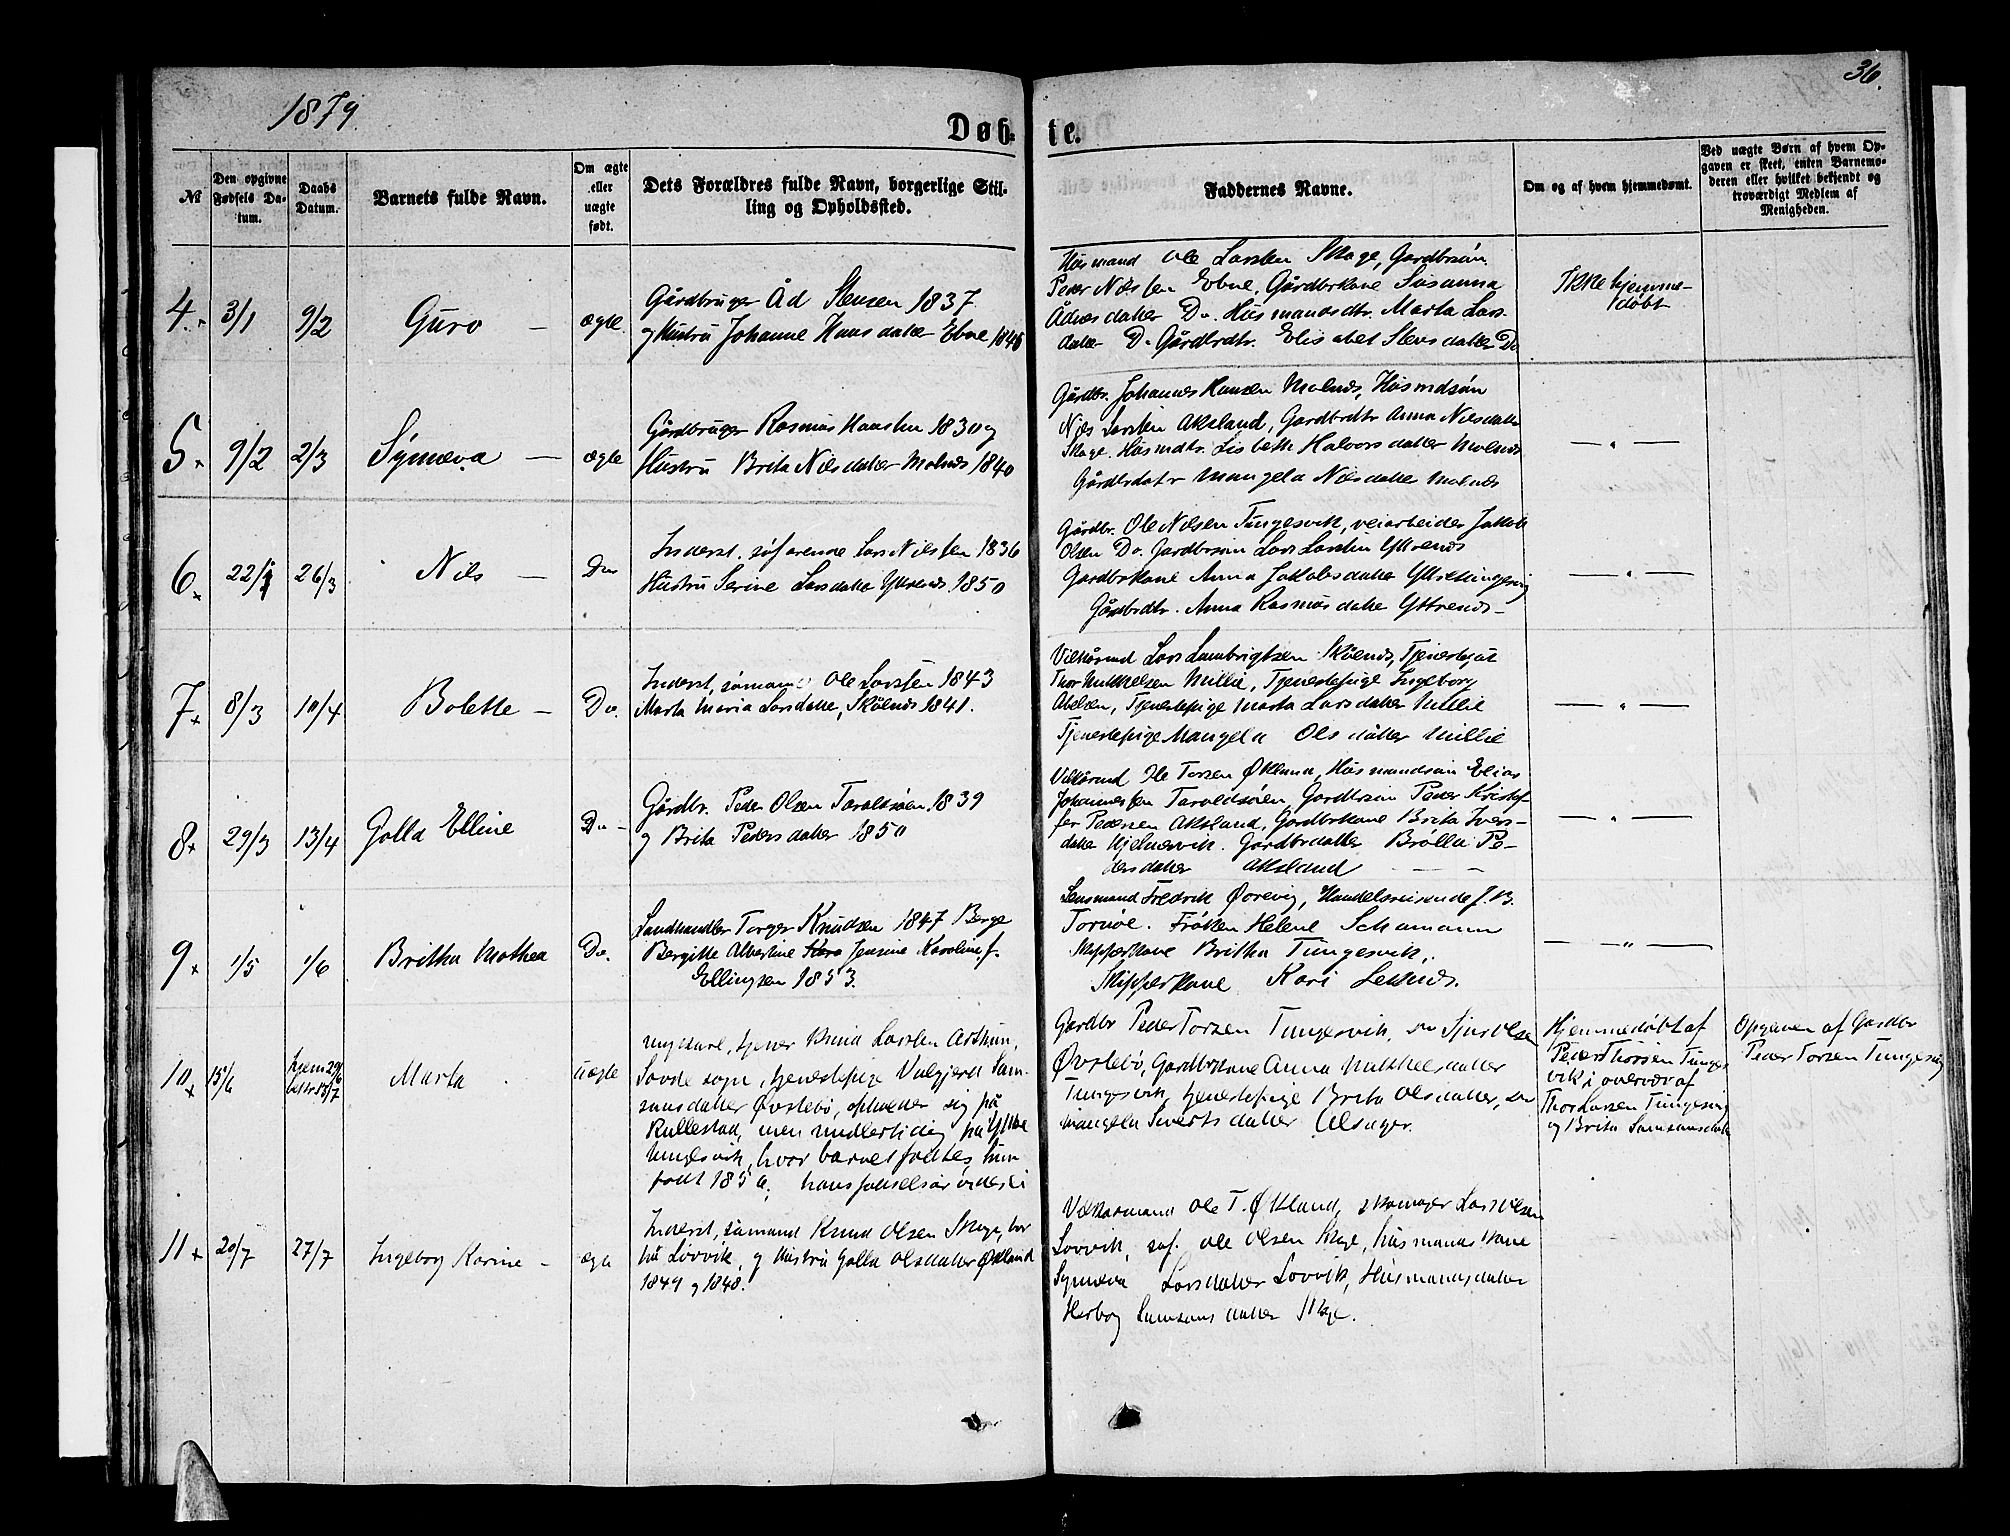 36.
1879.
Døb-
te.
№
Den opgivne Fødsels Datum.
Daabs Datum.
Barnets fulde Navn.
Om ægte eller uægte født.
Dets Forældres fulde Navn, borgerlige Stilling og Opholdssted.
Faddernes Navne.
Om og af hvem hjemmedøbt.
Ved uægte Børn af hvem Opgaven er skeet, enten Barnemoderen eller hvilket bekjendt og troværdigt Medlem af Menigheden.
4.
3/1
9/2
Guro —
ægte
Gårdbruger Åd Stensen 1837
og Hustru Johanne Hansdatter Ebne 1846
Husmand Ole Larsen Skage, Gardbrsøn
Peder Nilssen Ebne, Gårdbrkone Susanna
datter Do. Husmandsdtr. Marta Lars-
datter Do Gårdbrdtr. Elisabet Stensdatter Do
Ikke hjemme-
døbt
5
9/2
2/3
Synneva —
ægte
Gårdbruger Rasmus Hansen 1830 og
Hustru Brita Nilsdatter Molnes 1840
Gårdbr. Johannes Hansen Molnes, Husmdsøn
Nils Larsen Aksland, Gardbrdtr Anna Nilsdatter
Skage. Husmdtr. Lisbeth Halvorsdatter Molnes
Gårdbrdatr Mangela Nilsdatter Molnes
— " —
6
22/1
26/3
Nils —
Do
Inderst, søfarende Lars Nilssen 1836
Hustru Serine Larsdatter Ytrenes 1850
Gårdbr. Ole Nilsen Tungesvik, veiarbeider Jakob
Olsen Do. Gardbrsøn Lars Larsen Yttrenes
Gardbrkone Anna Jakobsdatter Yttretungesvig
Gårdbrdtr. Anna Rasmusdatter Yttrenes —
— " —
7
8/3
10/4
Bolette —
Do.
Inderst, sømand Ole Larssen 1843
Marta Maria Larsdatter, Skålnes 1841.
Vilkårmd Lars Lambrigtsen Skålnes, Tjenestegut
Thor Mikkelsen Millie, Tjenestepige Ingeborg
Abelsen, Tjenestepige Marta Larsdatter Millie
Tjenestepige Mangela Olsdatter Millie
— " —
8
29/3
13/4
Golla Elline
Do —
Gårdbr. Peder Olsen Taraldsøen 1839
og Brita Pedersdatter 1850
Vilkårmd Ole Torsen Økland, Husmandsøn Elias
Johannessen Taraldsøen, Gardbrsøn Peder Kristof-
fer Pedersen Aksland, Gardbrkone Brita Ivers-
datter Hjelmervik. Gårdbrdatter Brølla Pe-
dersdatter Aksland — —
— " —
9
1/5
1/6
Britha Mathea
Do.
Landhandler Torger Knudsen 1847 Berge
Bergitte Albertine Jensine Karoline f.
Ellingsen 1853.
Lensmand Fredrik Ørevig, Handelsreisende J. B.
Tornøe. Frøken Helene Schumann
Skipperkone Britha Tungesvik,
Skipperkone Kari Leknes.
— " —
10
15/6
hjem 29/6
13/7
Marta
uægte
ungkarl, tjener Knud Larsen Arthun,
Sovde sogn, tjenestepige Valgjerd Sam-
sonsdatter Øvstebø, opholder sig på
Rullestad, men midlertidig på Yttre
Tungesvik, hvor barnet fødtes, hun
født 1856, hans fødselsår
Gardbr Peder Torsen Tungesvik, Sjur Olsen
Øvstebø, Gardbrkone Anna Mikkelsdatter
Tungesvik, tjenestepige Brita Olsdatter,
Mangela Sivertsdatter Alsager.
Hjemmedøbt af
Peder Thorsen Tunges-
vik i overvær af
Thor Larsen Tungesvig
og Brita Samsonsdatter
Opgaven af Gardbr
Peder Torsen Tungesvig
11
20/7
27/7
Ingeborg Karine —
ægte
Inderst, sømand Knud Olsen Skage, bor
på Lovvik, og Hustru Golla Olsdatter Økland
1849 og 1848.
Vilkårsmand Ole T. Økland, skomager Lars Olsen
Lovvik, søf. Ole Olsen Skage, husmandskone
Synneva Larsdatter Lovvik, Husmandsdatter
Herborg Samsonsdatter Skage.